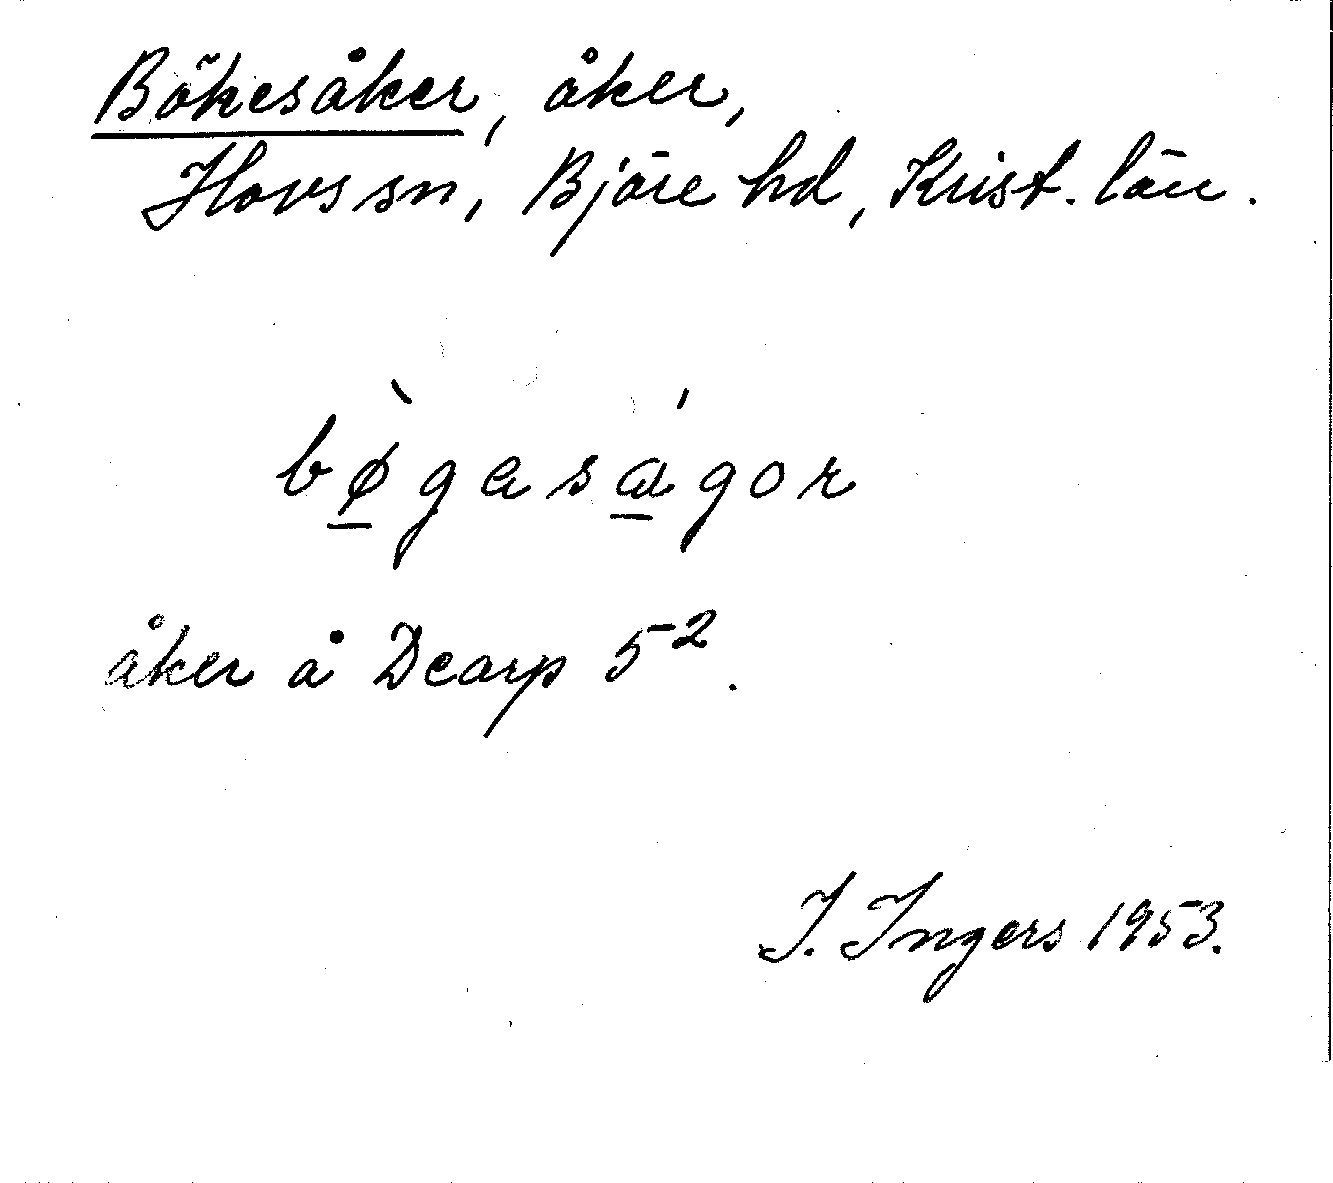 Bökesåker, åker,
Hovs sn, Bjäre hd, Krist. län.
bø̲̀gasá̲gor
åker å Dearp 5².
I. Ingers 1953.